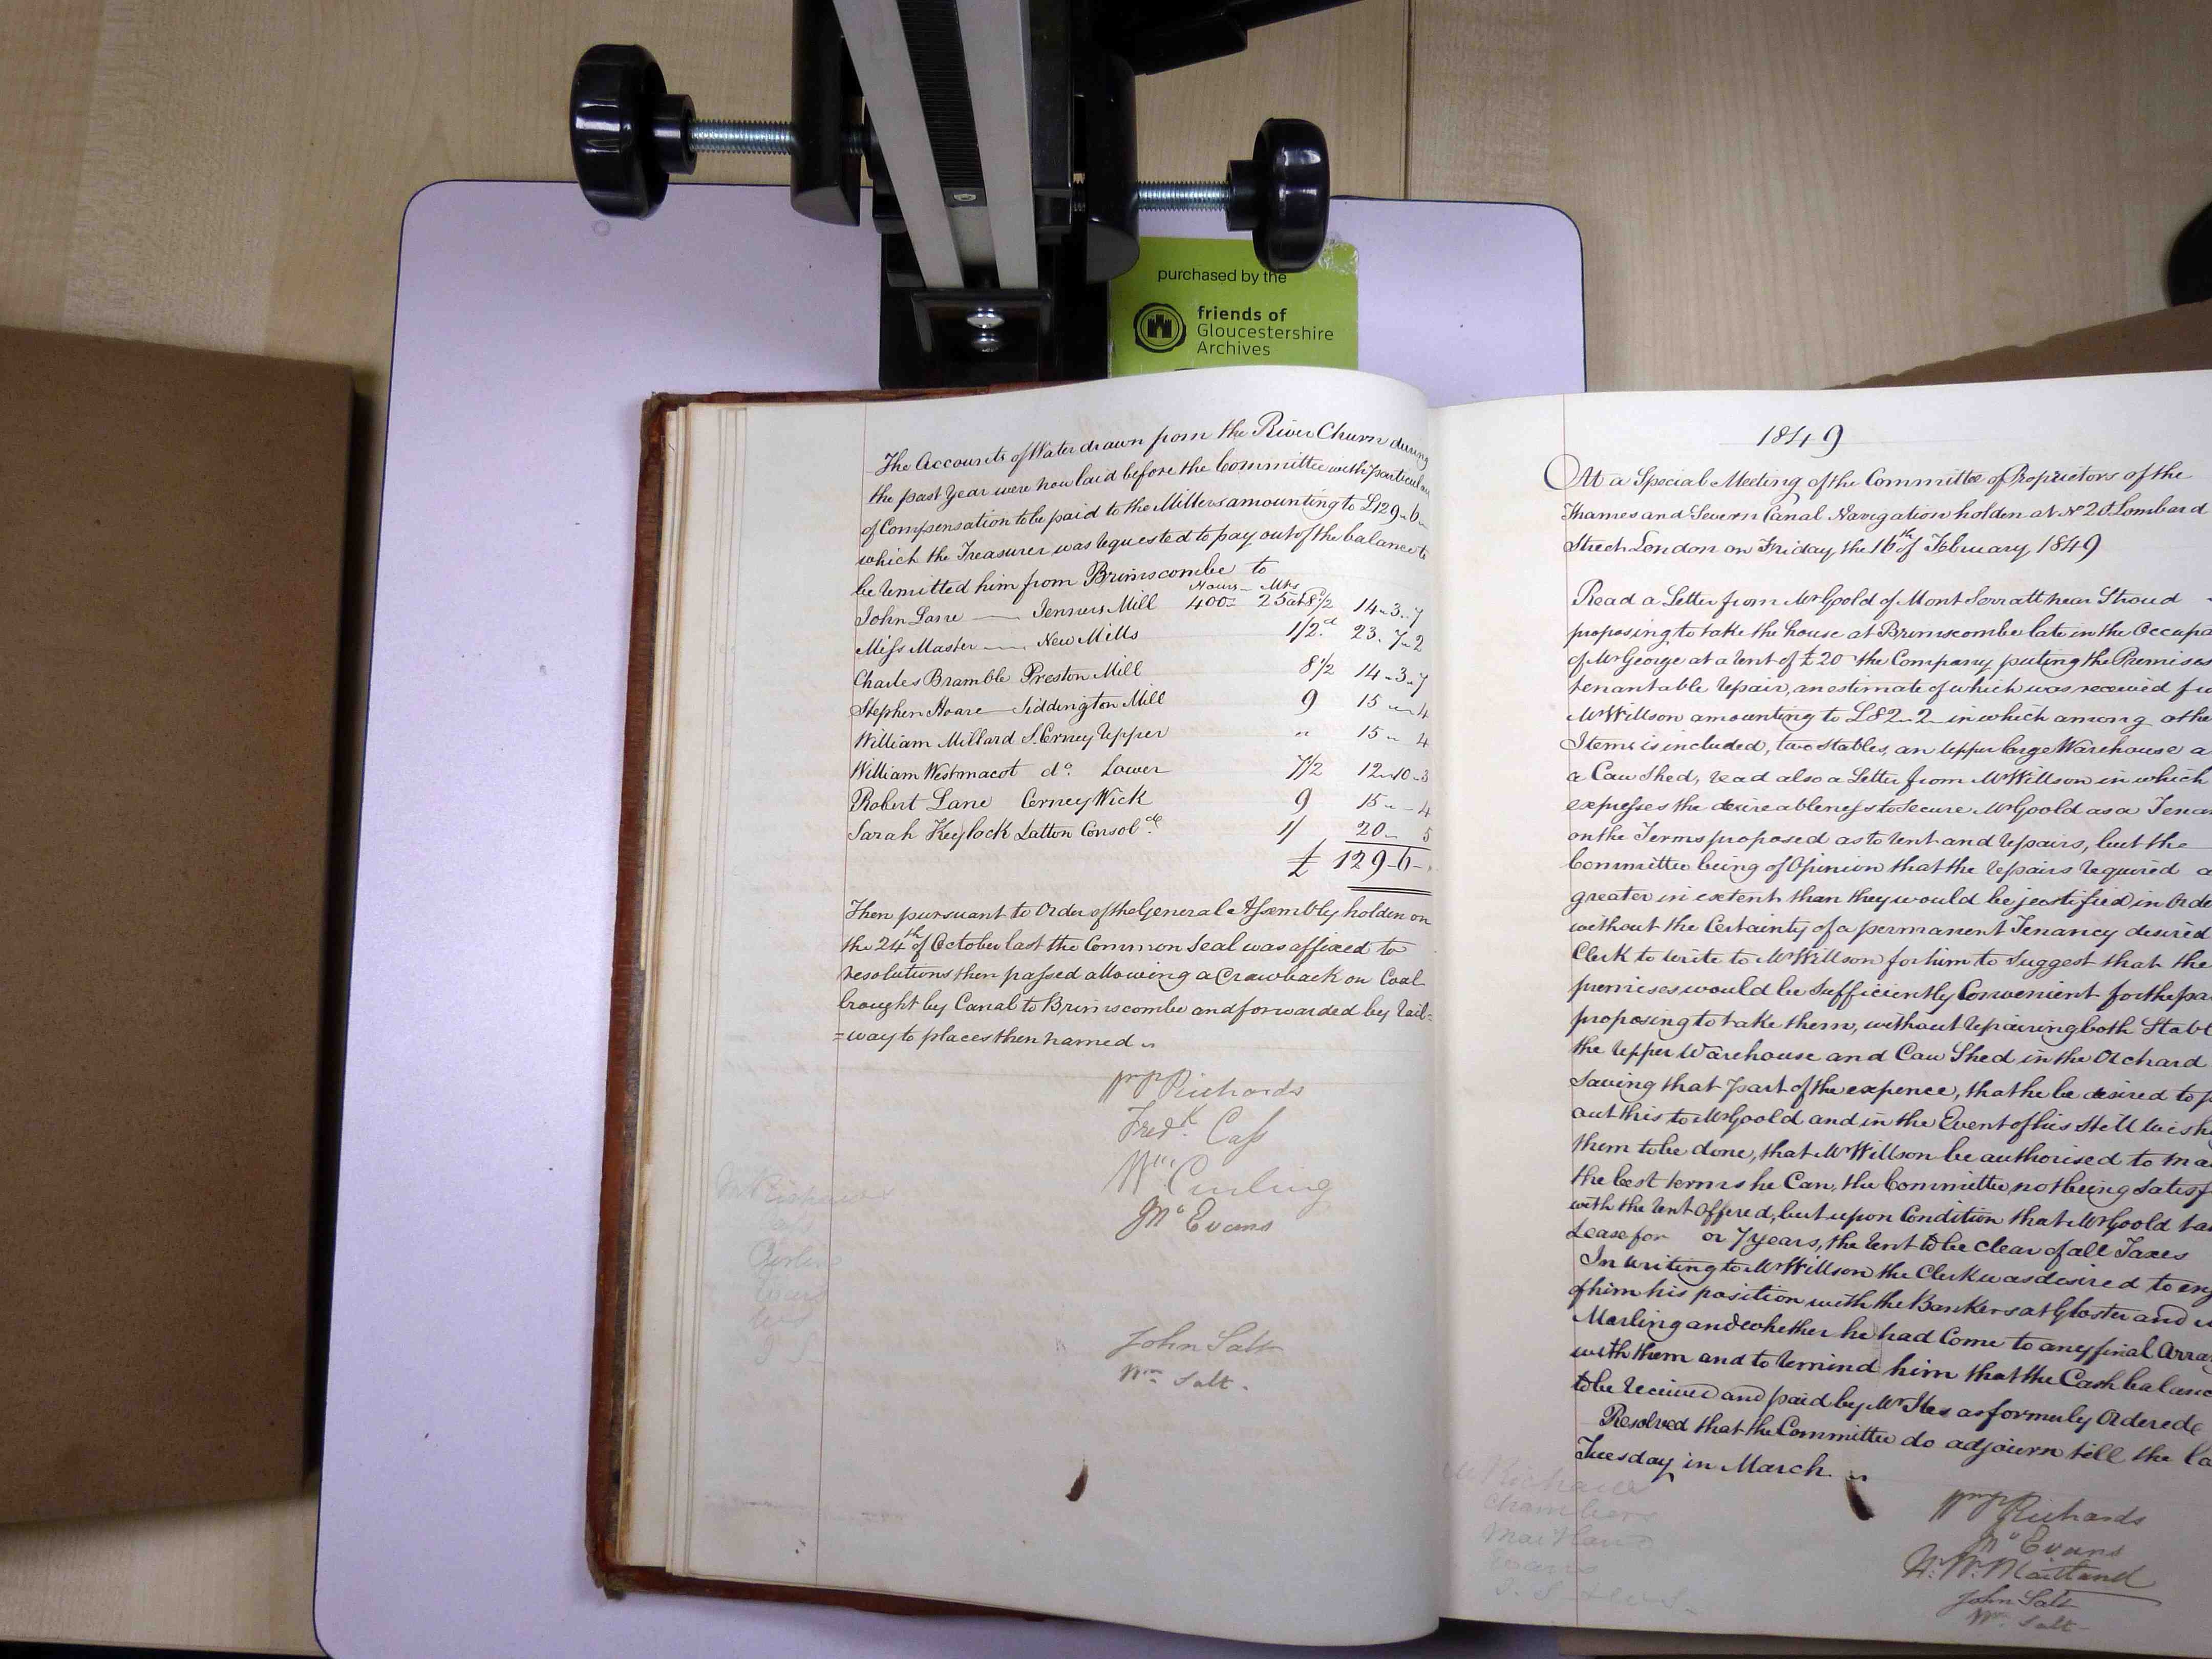 purchased by the
friends of
Gloucestershire
Archives
The Accounts of Water drawn from the River Churn during
the past Year were now laid before the Committee with particulars
of Compensation to be paid to the Millers amounting to £129-6-
which the Treasurer was requested to pay out of the balance to
be remitted him from Brimscombe to
Hours Mts
John Lane Jenners Mill 400 25 at 8 1/2 14-3-7
Miss Master New Mills 1/2d 23-7-2
Charles Bramble Preston Mill 8 1/2 14-3-7
Stephen Hoare Siddington Mill 9 15 - 4
William Millard S. Cerney Upper " 15 - 4
William Westmacot do. Lower 7 1/2 12-10-3
Robert Lane Cerney Wick 9 15 - - 4
Sarah Keylock Latton Consolde. 1/ 20 - 5
£ 129-6-
Then pursuant to Order of the General Assembly holden on
the 24th of October last the Common Seal was affixed to
resolutions then passed allowing a Drawback on Coal
brought by Canal to Brimscombe and forwarded by rail=
=way to places then named
Wm P Richards
Fredk. Cass
Wm. Curling
Jno Evans
John Salt
Wm. Salt.
1849
At a Special Meeting of the Committee of Proprietors of the
Thames and Severn Canal Navigation holden at No 20 Lombard
Street London on Friday, the 16th of February 1849
Read a Letter from Mr Goold of Mont Serratt near Stroud
proposing to take the house at Brimscombe late in the Occupa
of Mr George at a rent of £20 the Company puting the Premises
tenantable repair, an estimate of which was received fro
Mr Willson amounting to £82-2- in which among othe
Items is included, two Stables, an upper large Warehouse a
a Cow Shed, read also a Letter from Mr Willson in which
expresses the desireableness to secure Mr Goold as a Tenan
on the Terms proposed as to rent and repairs, but the
Committee being of Opinion that the repairs required a
greater in extent than they would be justified in Orde
without the Certainty of a permanent Tenancy desired
Clerk to write to Mr Willson for him to Suggest that the
premises would be Sufficiently Convenient for the pa
proposing to take them, without repairing both Stabl
the upper Warehouse and Cow Shed in the Orchard
Saving that part of the expence, that he be desired to p
out this to Mr Goold and in the Event of his still wish
them to be done, that Mr Willson be authorised to ma
the best terms he Can, the Committee not being Satisf
with the rent Offered, but upon Condition that Mr Goold ta
Lease for or 7 years, the rent to be clear of all Taxes
In writing to Mr Willson the Clerk was desired to enq
of him his position with the Bankers at Gloster and
Marling and whether he had Come to any final Arra
with them and to remind him that the Cash balanc
to be received and paid by Mr Iles as formerly Ordered
Resolved that the Committee do adjourn till the la
Tuesday in March
Wm P Richards
Jno Evans
Maitland
John Salt
Wm. Salt
Richards
Chambers
Maitland
Evans